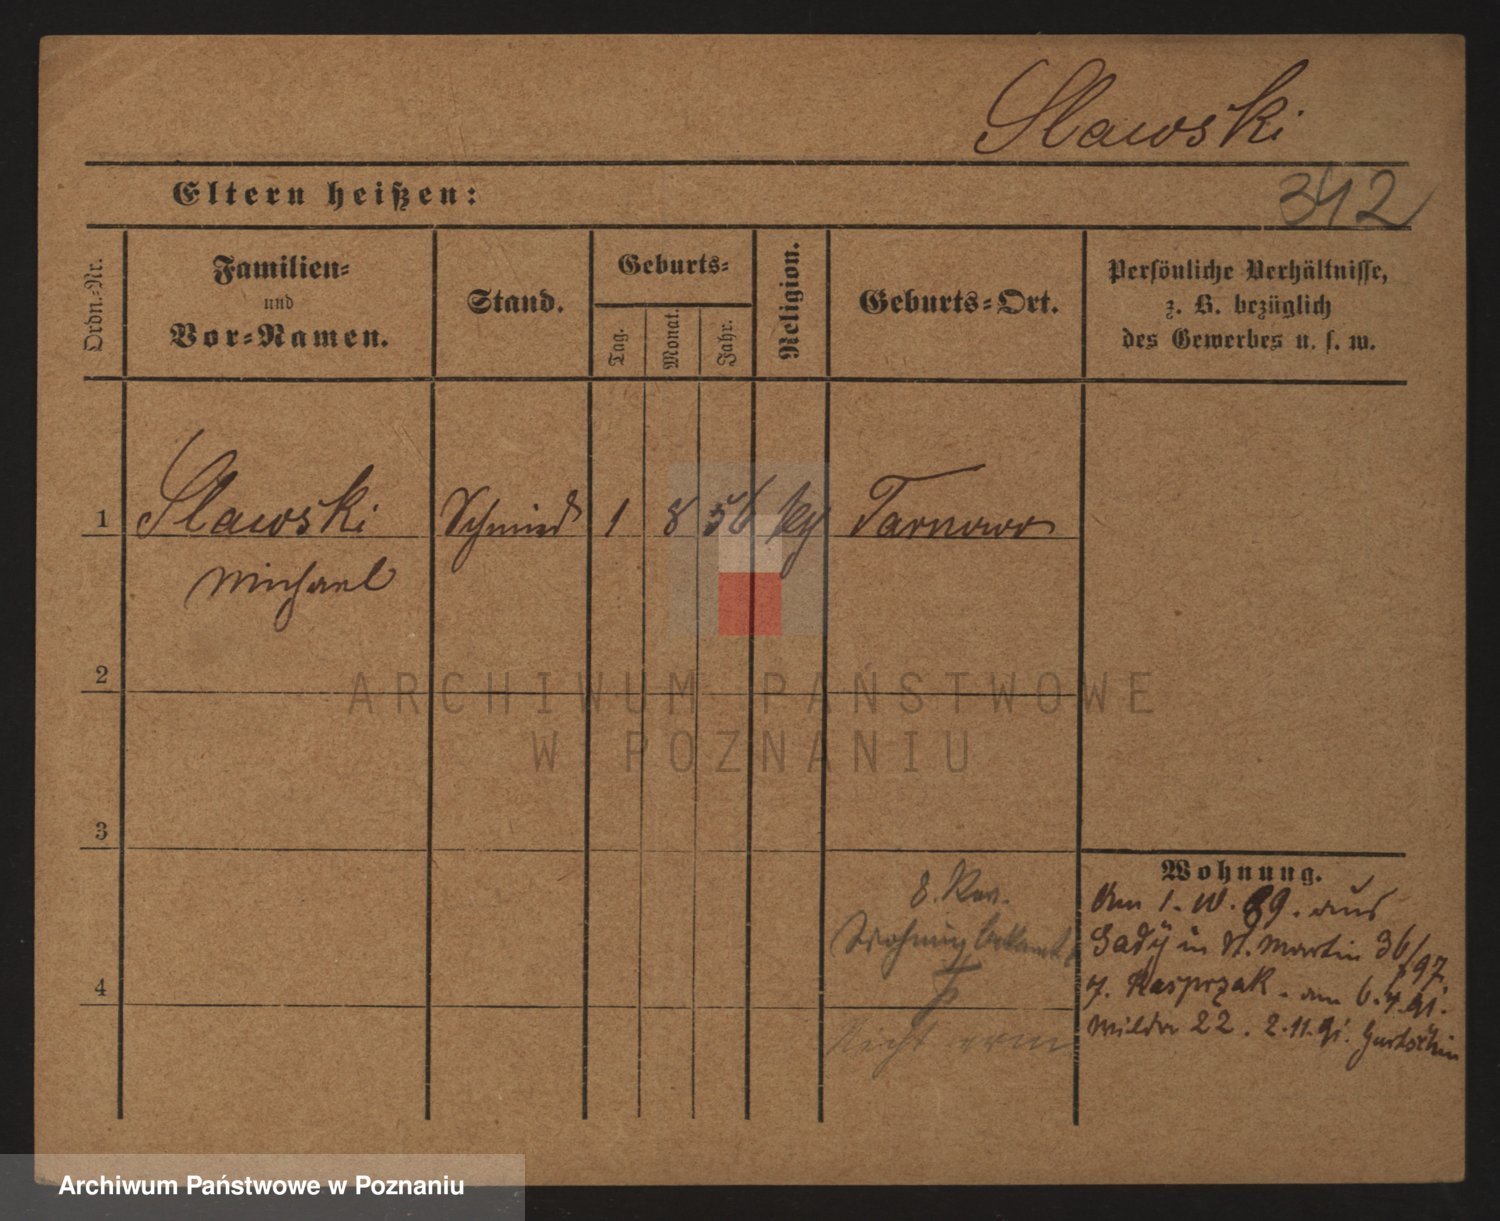 Slawski
342
Eltern heißen:
Ordn.-Nr.
Familien-
und
Vor-Namen.
Stand.
Geburts-
Tag.
Monat.
Jahr.
Religion.
Geburts-Ort.
Persönliche Verhältnisse,
z. B. bezüglich
des Gewerbes u. s. w.
1 Slawski Schmied 1 8 56 Tarnowo
Michael
2
ARCHIWUM PAŃSTWOWE
W POZNANIU
3
Wohnung.
8. Rev.
Wohnung bekannt
Nicht erm
Am 1. 10. 89. aus
Sady in St. Martin 36/97.
Kasprzak. am 6.4.91.
Wilda 22. 2.11.91. Gurtschin
4
Archiwum Państwowe w Poznaniu